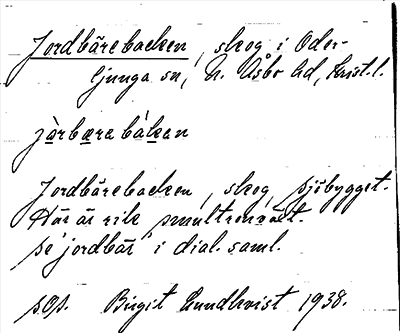 Jordbärebacken, skog i Oder-
ljunga sn, N. Åsbo hd, Krist. l.
jàrbæra bàkan
Jordbärebacken, skog, Sjöbygget.
Här är rik smultronväxt.
Se "jordbär" i dial. saml.
s.Op. Birgit Lundkvist 1938.